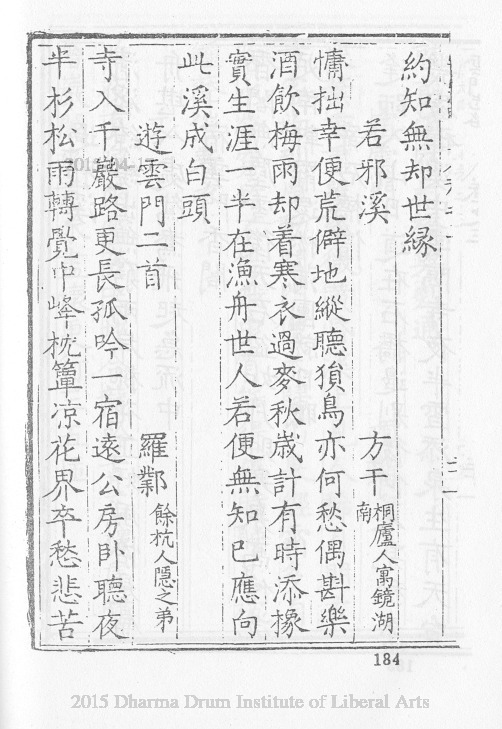 約知無却世緣
若邪溪 方干 桐廬人寓鏡湖南
慵拙幸便荒僻地縱聽猿鳥亦何愁偶斟樂
酒飲梅雨却着寒衣過麥秋歲計有時添橡
實生涯一半在漁舟世人若便無知已應向
此溪成白頭
遊雲門二首 羅鄴 餘杭人隱之弟
寺入千巖路更長孤吟一宿遠公房卧聽夜
半杉松雨轉覺中峰枕簟凉花界卒愁悲苦
184
2015 Dharma Drum Institute of Liberal Arts